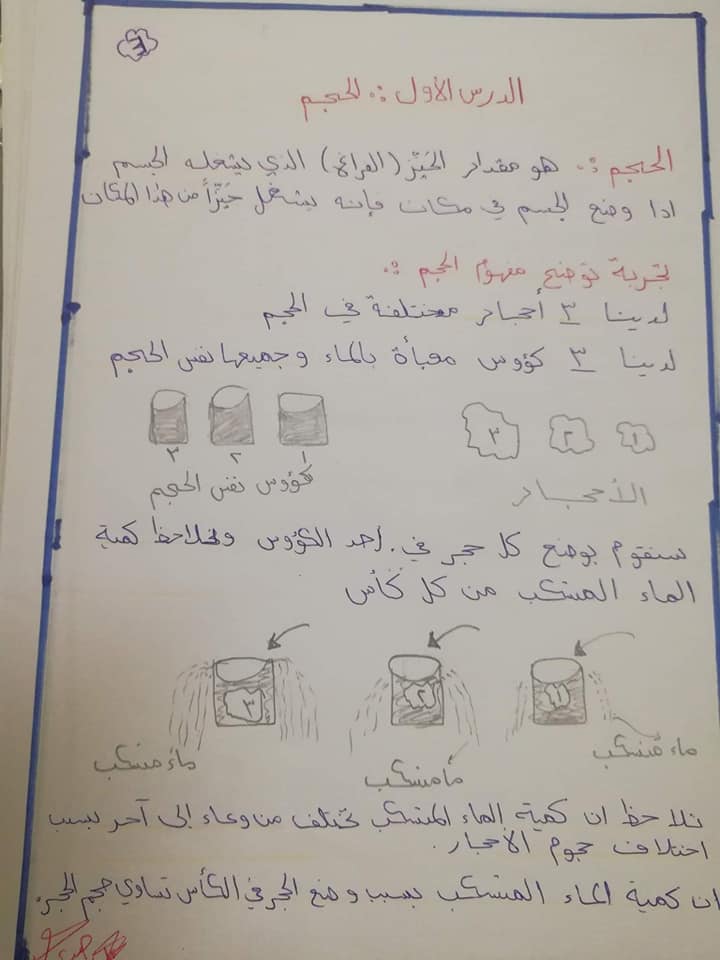 ٣
الدرس الأول :. الحجم
الحجم :. هو مقدار الحَيّز (الفراغ) الذي يشغله الجسم
اذا وضع الجسم في مكان فإنه يشغل حَيّزاً من هذا المكان
تجربة توضح مفهوم الحجم :.
لدينا ٣ أحجار مختلفة في الحجم
لدينا ٣ كؤوس معبأة بالماء وجميعها نفس الحجم
١ ٢ ٣
١ ٢ ٣
الأحجار
كؤوس نفس الحجم
سنقوم بوضع كل حجر في احد الكؤوس ونلاحظ كمية
الماء المنسكب من كل كأس
١ ٢ ٣
ماء منسكب
ماء منسكب
ماء منسكب
نلاحظ ان كمية الماء المنسكب تختلف من وعاء إلى آخر بسبب
اختلاف حجوم الأحجار.
ان كمية الماء المنسكب بسبب وضع الحجر في الكأس تساوي حجم الحجر.